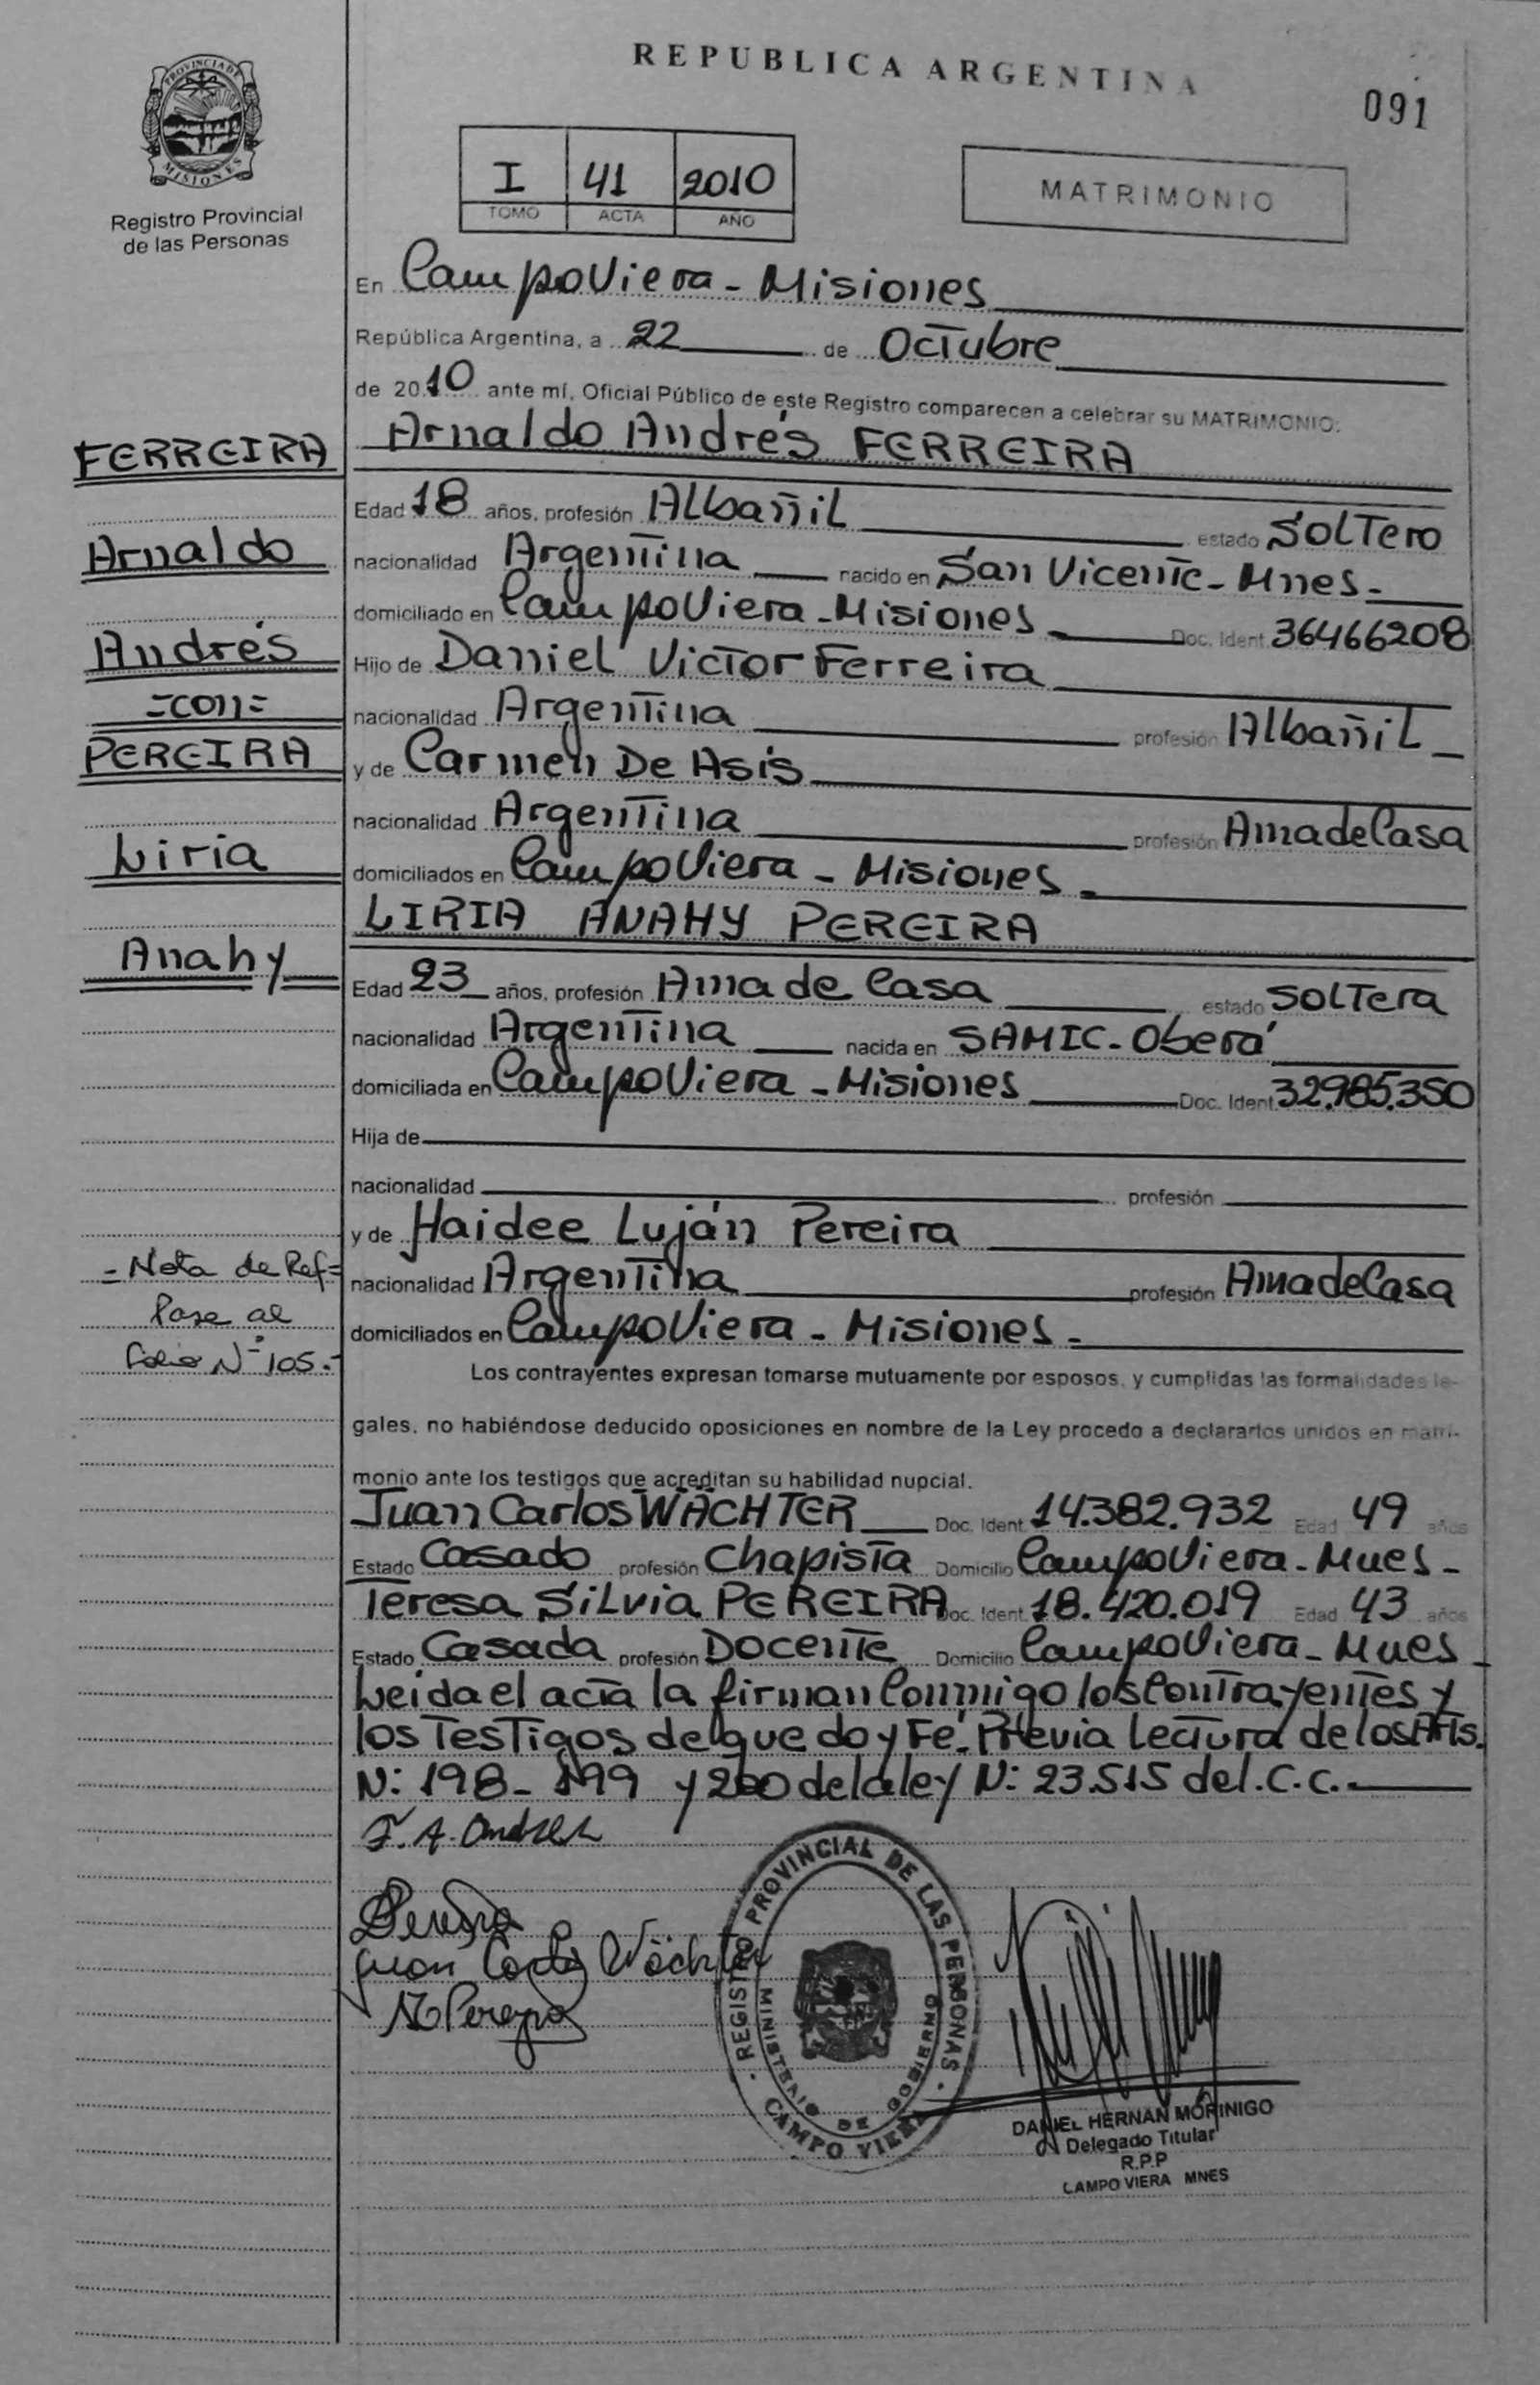 REPUBLICA ARGENTINA
091
PROVINCIA DE MISIONES
Registro Provincial
de las Personas
I 41 2010
TOMO ACTA AÑO
MATRIMONIO
En Campo Viera - Misiones
República Argentina, a 22 de Octubre
de 2010 ante mí, Oficial Público de este Registro comparecen a celebrar su MATRIMONIO:
FERREIRA
Arnaldo
Andrés
=con=
PEREIRA
Liria
Anahy
Arnaldo Andrés FERREIRA
Edad 18 años, profesión Albañil estado Soltero
nacionalidad Argentina nacido en San Vicente - Mnes -
domiciliado en Campo Viera - Misiones Doc. Ident. 36466208
Hijo de Daniel Victor Ferreira
nacionalidad Argentina profesión Albañil
y de Carmen De Asis
nacionalidad Argentina profesión Ama de Casa
domiciliados en Campo Viera - Misiones -
LIRIA ANAHY PEREIRA
Edad 23 años, profesión Ama de Casa estado Soltera
nacionalidad Argentina nacida en SAMIC - Oberá
domiciliada en Campo Viera - Misiones Doc. Ident. 32.985.350
Hija de
nacionalidad profesión
y de Haidee Luján Pereira
nacionalidad Argentina profesión Ama de Casa
domiciliados en Campo Viera - Misiones -
= Nota de Ref =
Pase al
Folio Nº 105.-
Los contrayentes expresan tomarse mutuamente por esposos, y cumplidas las formalidades le-
gales, no habiéndose deducido oposiciones en nombre de la Ley procedo a declararlos unidos en matri-
monio ante los testigos que acreditan su habilidad nupcial.
Juan Carlos WÄCHTER Doc. Ident. 14.382.932 Edad 49 años
Estado Casado profesión Chapista Domicilio Campo Viera - Mnes -
Teresa Silvia PEREIRA Doc. Ident. 18.420.019 Edad 43 años
Estado Casada profesión Docente Domicilio Campo Viera - Mnes -
Leida el acta la firman Conmigo los Contrayentes y
los Testigos de que doy Fé. Previa Lectura de los Arts.
N: 198 - 199 y 200 de la ley N: 23.515 del. C.C. -
F. A. Andres
Pereira
Juan Carlos Wächter
Pereira
REGISTRO PROVINCIAL DE LAS PERSONAS
MINISTERIO DE GOBIERNO
CAMPO VIERA
DANIEL HERNAN MORINIGO
Delegado Titular
R.P.P
CAMPO VIERA MNES